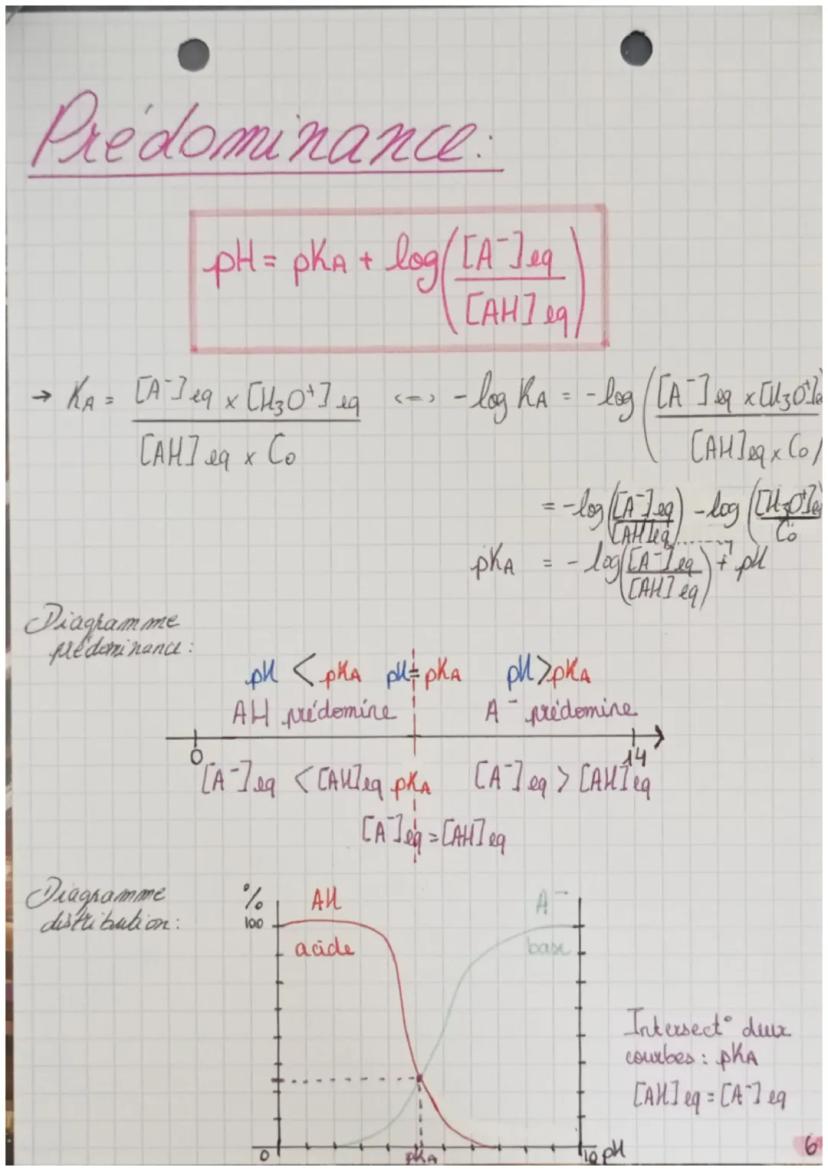 Prédominance:
pH = pKA + log([A⁻]eq / [AH]eq)
→ KA = [A⁻]eq x [H₃O⁺]eq / [AH]eq x C₀ <=> -log KA = -log([A⁻]eq x [H₃O⁺]e / [AH]eq x C₀)
= -log([A⁻]eq / [AH]eq) - log([H₃O⁺]e / C₀)
pKA = - log([A⁻]eq / [AH]eq) + pH
Diagramme
prédominance:
pH < pKA pH = pKA pH > pKA
AH prédomine A⁻ prédomine
0 14
[A⁻]eq < [AH]eq pKA [A⁻]eq > [AH]eq
[A⁻]eq = [AH]eq
Diagramme
distribution:
% AH A⁻
100
acide base
Intersect° deux
courbes: pKA
[AH]eq = [A⁻]eq
0 pKA pH
6